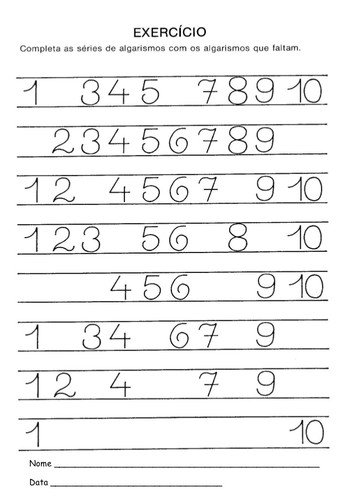 EXERCÍCIO
Completa as séries de algarismos com os algarismos que faltam.
1 3 4 5 7 8 9 10
2 3 4 5 6 7 8 9
1 2 4 5 6 7 9 10
1 2 3 5 6 8 10
4 5 6 9 10
1 3 4 6 7 9
1 2 4 7 9
1 10
Nome
Data